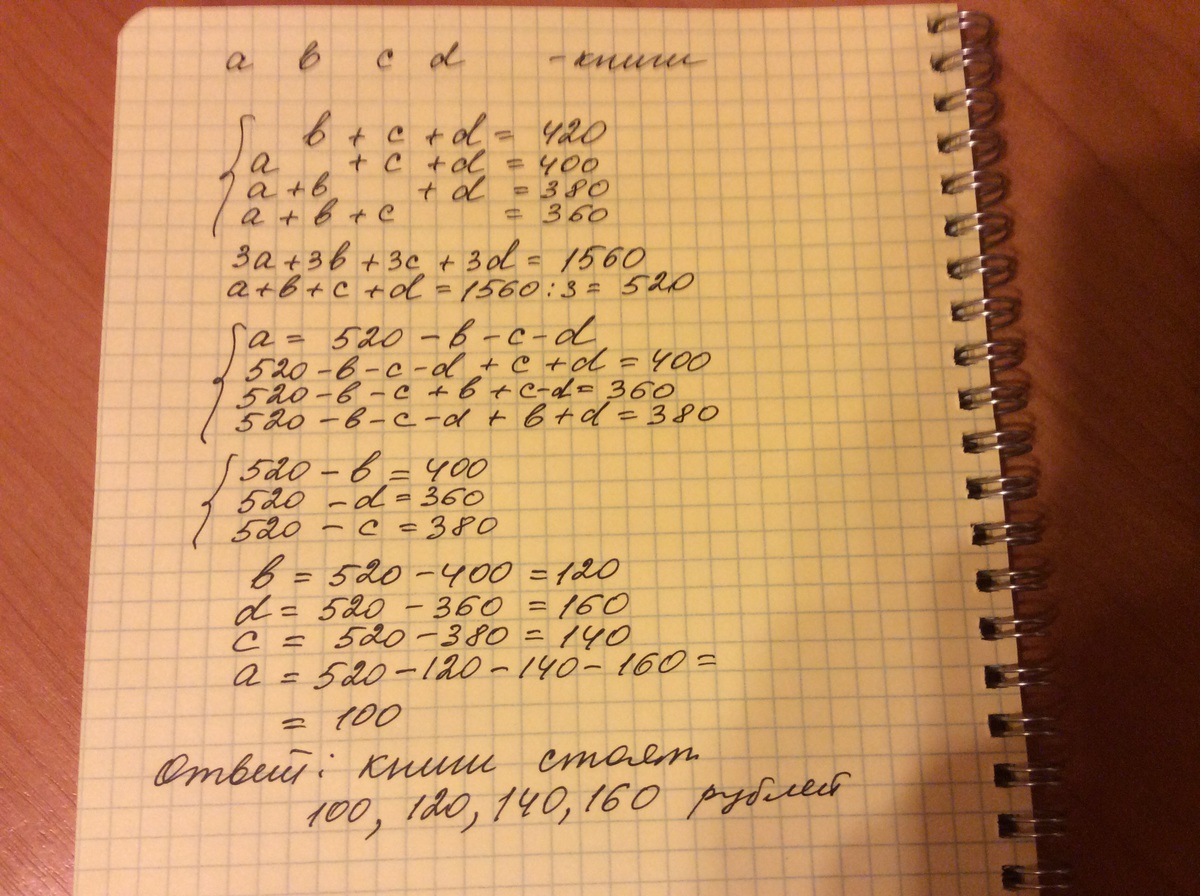 а в с d - книги
в + с + d = 420
а + с + d = 400
а + в + d = 380
а + в + с = 360
3а + 3в + 3с + 3d = 1560
а + в + с + d = 1560 : 3 = 520
а = 520 - в - с - d
520 - в - с - d + с + d = 400
520 - в - с + в + с - d = 360
520 - в - с - d + в + d = 380
520 - в = 400
520 - d = 360
520 - с = 380
в = 520 - 400 = 120
d = 520 - 360 = 160
с = 520 - 380 = 140
а = 520 - 120 - 140 - 160 =
= 100
Ответ: книги стоят
100, 120, 140, 160 рублей